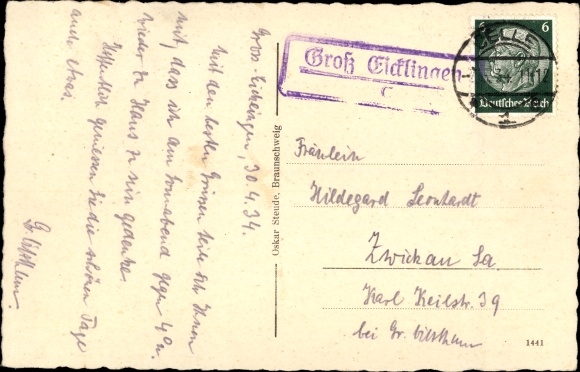 Gross-Eicklingen, 30.4.34.
Mit den besten Grüssen teile ich Ihnen
mit, dass ich am Sonnabend gegen 4 U.
wieder zu Haus zu sein gedenke.
Hoffentlich geniessen Sie die schönen Tage
auch etwas.
Oskar Steude, Braunschweig
Groß Eicklingen
CELLE
1
6
6
Deutsches Reich
Fräulein
Hildegard Leonhardt
Zwickau Sa.
Karl Keilstr. 39
bei Dr.
1441